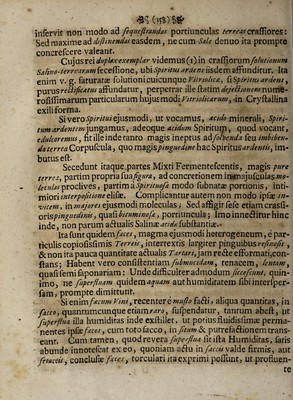 (158)
inservit non modo ad sequestrandas portiunculas terreas crassiores:
Sed maxime ad destinendas easdem, ne cum Sale denuo ita prompte
concrescere valeant.
Cujus rei duplex exemplar videmus (1) in crassjorum solutionum
Salino-terrearum secessione, ubi Spiritus ardens iisdem affunditur. Ita
enim v. g. saturatæ solutioni cuicunque Vitriolicæ, si Spiritus ardens,
purus rectificatus affundatur, perpetrat ille statim dejectionem nume-
rosissimarum particularum hujusmodi Vitriolicarum, in Crystallina
exili forma.
Si vero Spiritui ejusmodi, ut vocamus, acido minerali, Spiri-
tum ardentem jungamus, adeoque acidum Spiritum, quod vocant,
edulcoremus, fit ille inde tanto magis ineptus ad subeunda seu imbiben-
da terrea Corpuscula, quo magis pinguedine hac Spiritus ardentis, im-
butus est.
Secedunt itaque, partes Mixti Fermentescentis, magis pure
terreæ, partim propria sua figura, ad concretionem in majusculas mo-
leculas proclives, partim a Spirituosæ modo subnatæ portionis, inti-
miori interpositione elisæ. Complicantur autem non modo ipsæ in-
vicem, in majores ejusmodi moleculas, Sed affigit sese etiam crassi-
oris pinguedinis, quasi bituminosæ, portiuncula; Imo innectitur hinc
inde, non parum actualis Salinæ acidæ substantiæ.
Ita sunt quidem fæces, magna ejusmodi heterogeneum, é par-
ticulis copiosissimis Terreis, intertextis largiter pinguibus resinosis,
& non ita pauca quantitate actualis Tartari, jam recte efformati, con-
stans; Habent vero consistentiam submucidam, tenacem, lentam,
quasi semi saponariam: Unde difficulter admodum siccescunt, quin-
imo, ne superfluam quidem aquam aut humiditatem sibi intersper-
sam, prompte dimittunt.
Si enim fæcum Vini, recenter é musto facti, aliqua quantitas, in
sacco, quantumcunque etiam raro, suspendatur, tantum abest, ut
superflua illa humiditas inde exstillet, ut potius fluidissimæ perma-
nentes ipsæ fæces, cum toto sacco, in situm & putrefactionem trans-
eant. Cum tamen, quod revera superflua sit ista Humiditas, satis
abunde innotescat ex eo, quoniam actu in saccis valde firmis, aut
setaceis, conclusæ fæces, torculari ita exprimi possunt, ut profluen-
te